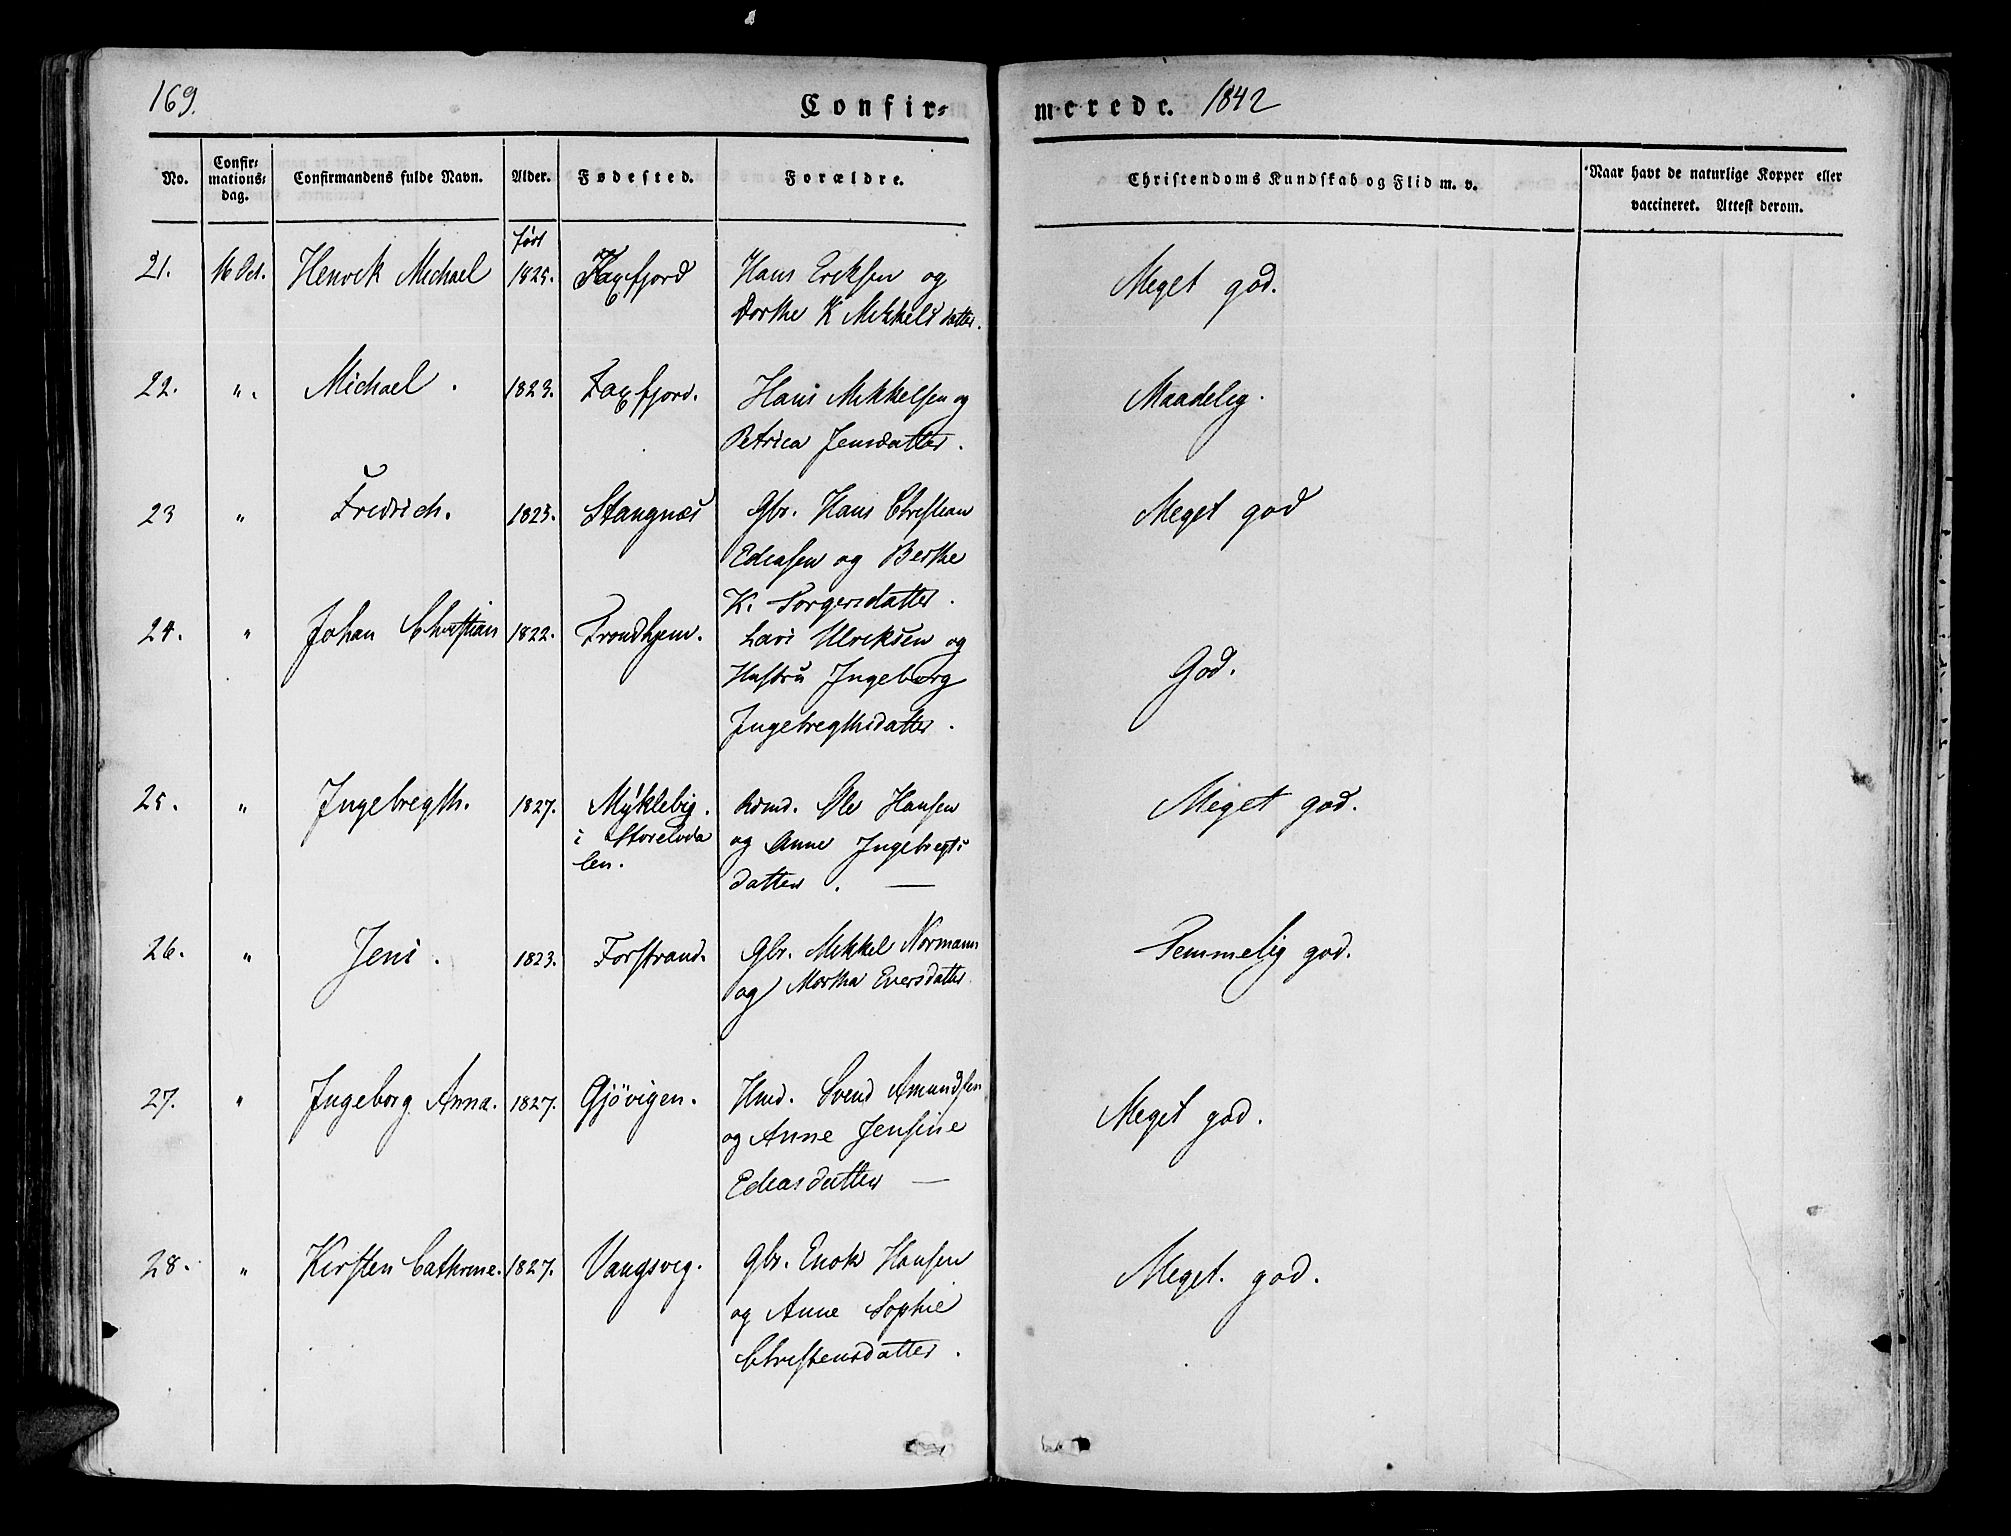 169.
Confir=
merede. 1842
No.
Confir=
mations=
dag.
Confirmandens fulde Navn.
Alder.
Fødested.
Forældre.
Christendoms Kundskab og Flid m. v.
Naar havt de naturlige Kopper eller
vaccineret. Attest derom.
født
21. 16 Oct. Henrik Michael 1825. Faxfjord Hans Eriksen og Meget god.
Dorthe K Mikkelsdatter.
22. ". Michael. 1823. Faxfjord. Hans Mikkelsen og Maadelig.
Petrica Jensdatter.
23 " Fredrich. 1825. Stangnæs Gbr. Hans Christian Meget god
Eliasen og Berthe
K. Torgersdatter.
24. " Johan Christian 1822. Trondhjem. Lars Ulriksen og God.
Hustru Ingeborg
Ingebregthsdatter.
25. " Ingebregth. 1827. Myklebig. Rdmd. Ole Hansen Meget god.
i Storelvda og Anne Ingebregts
len. datter. —
26. " Jens. 1823. Forstrand. Gbr. Mikkel Normann Temmelig god.
og Martha Eversdatter
27. " Ingeborg Anna. 1827. Gjövigen. Hmd. Svend Amundsen Meget god.
og Anne Jensine
Eliasdatter —
28. " Kirsten Cathrine. 1827. Vangsvig. Gbr. Enok Hansen Meget. god.
og Anne Sophie
Christensdatter.